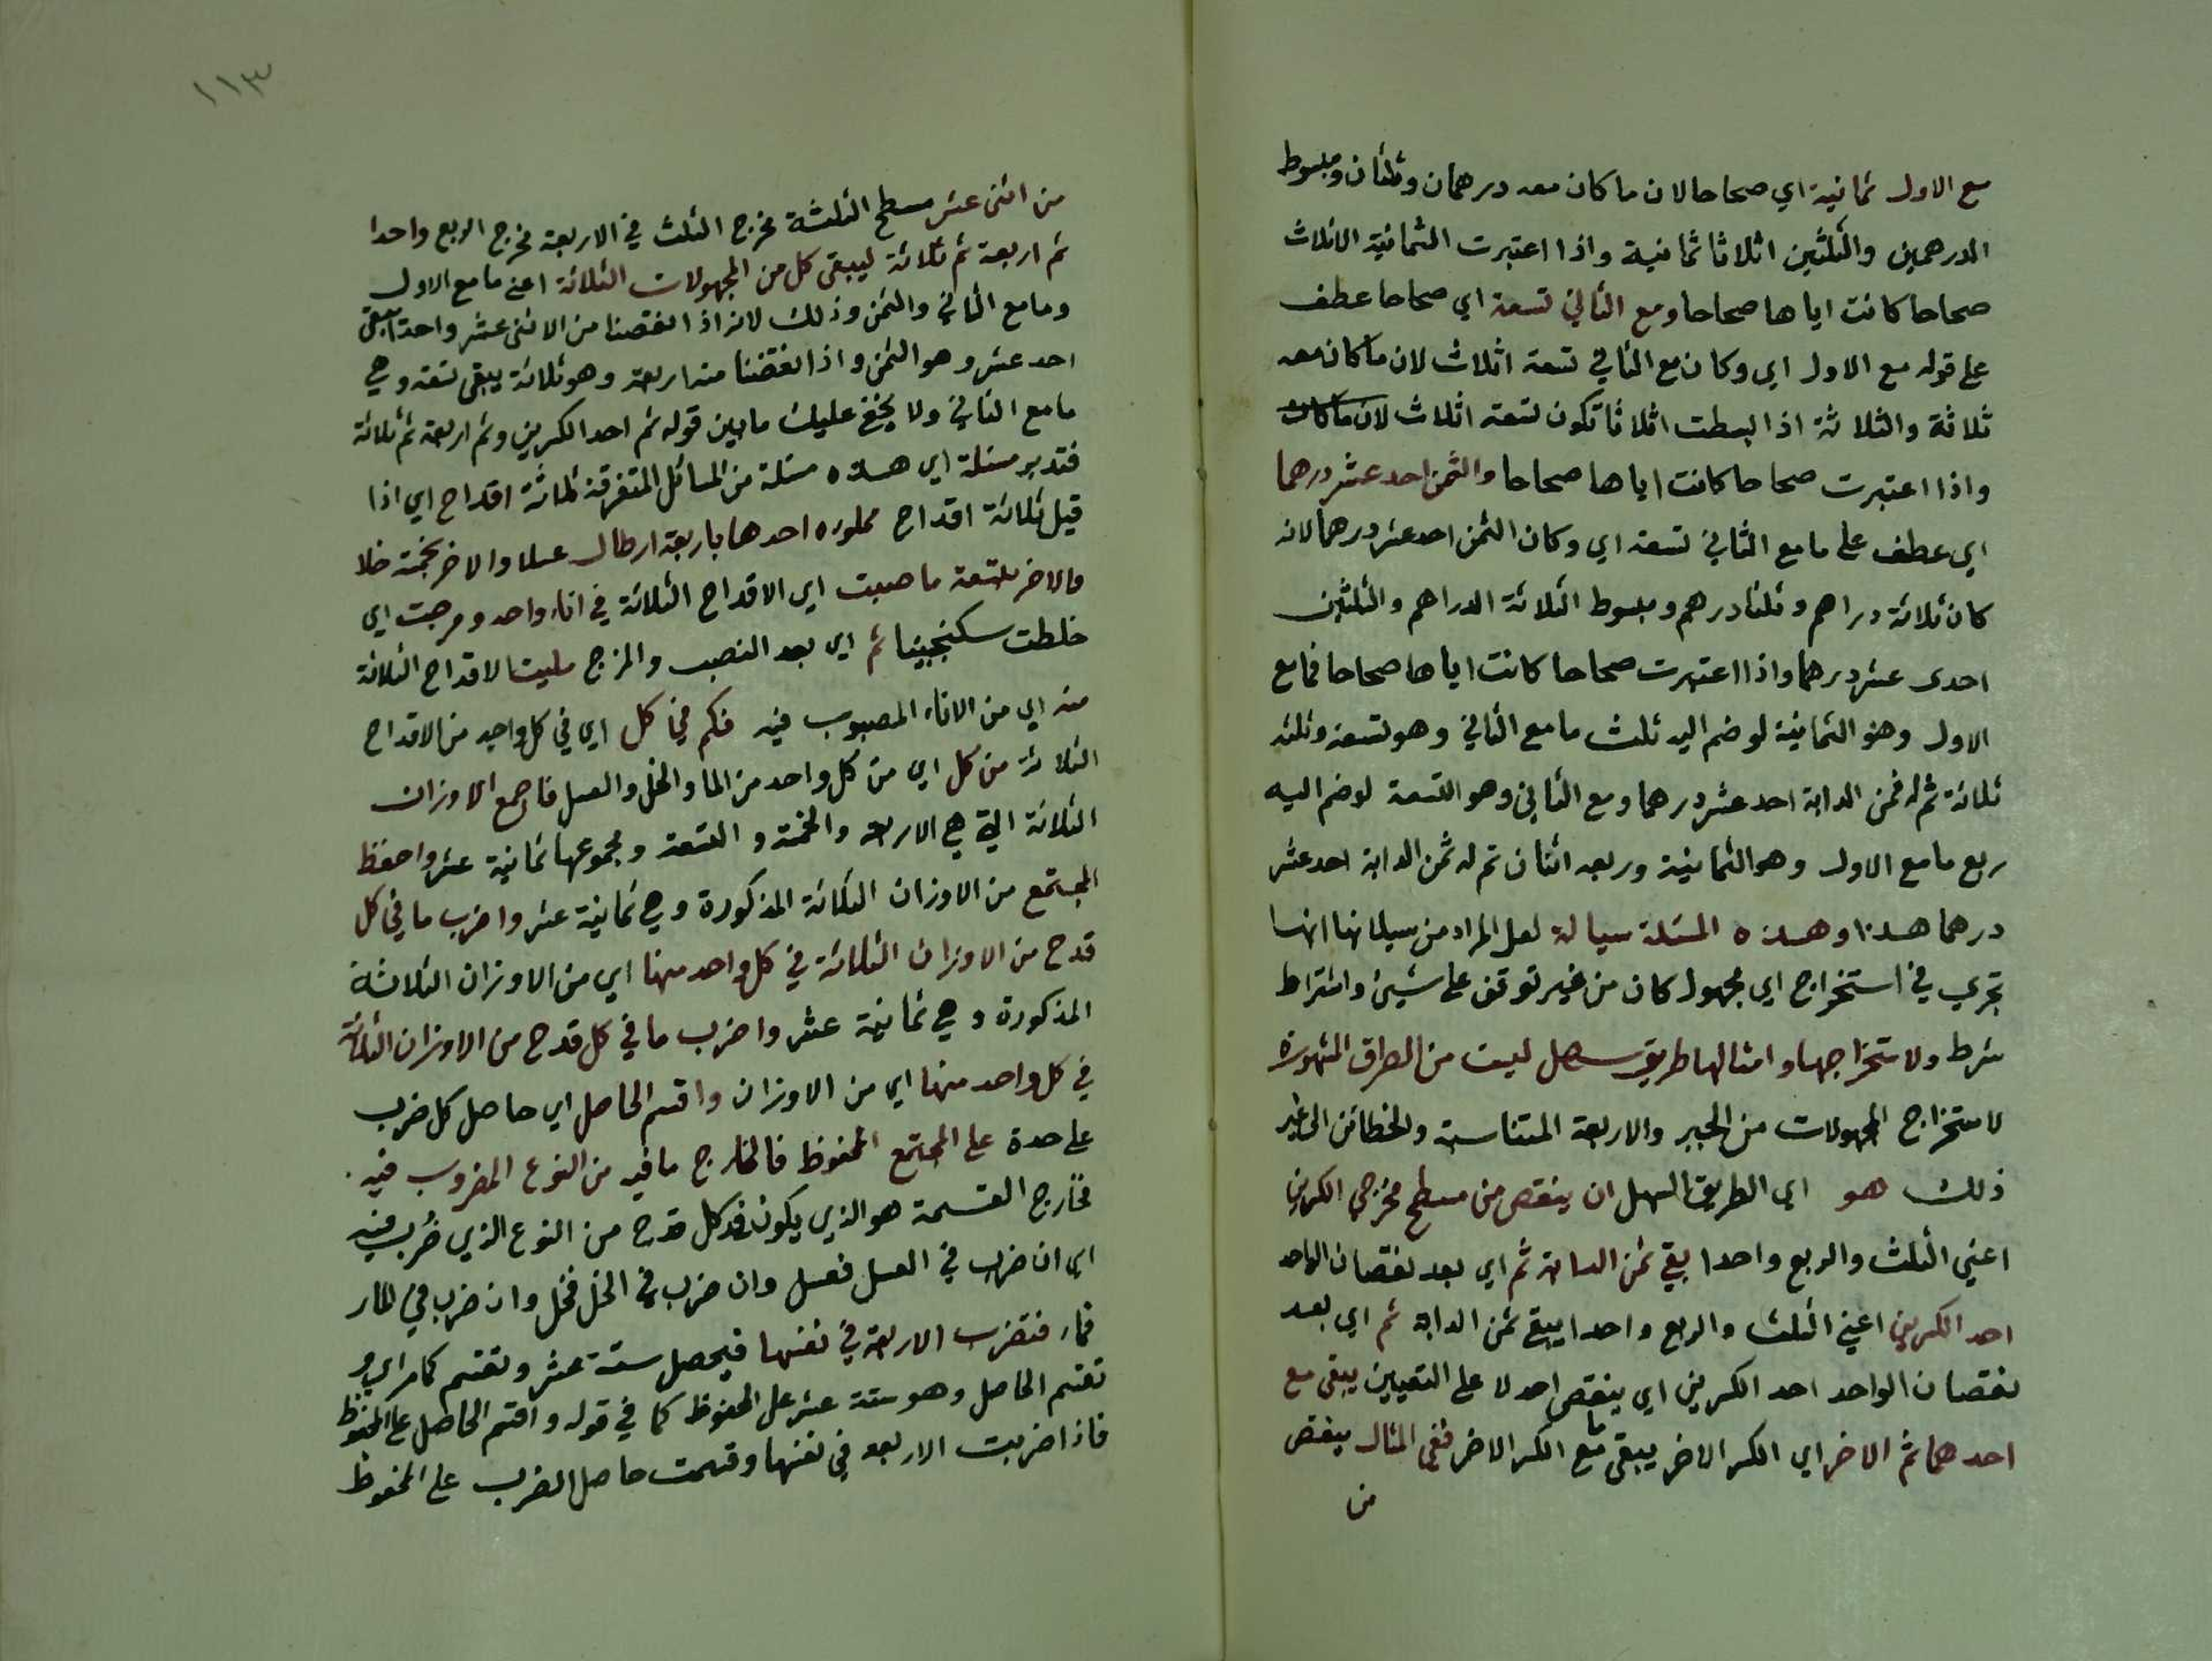 مع الاول ثمانية اي صحاحا لان ما كان معه درهمان وثلثان ومبسوط
الدرهمين والثلثين اثلاثا ثمانية واذا اعتبرت الثمانية الاثلاث
صحاحا كانت اياها صحاحا ومع الثاني تسعة اي صحاحا عطف
على قوله مع الاول اي وكان مع الثاني تسعة اثلاث لان ما كان معه
ثلاثة والثلاثة اذا بسطت اثلاثا تكون تسعة اثلاث لان ما كان معه
واذا اعتبرت صحاحا كانت اياها صحاحا والثمن احد عشر درهما
اي عطف على ما مع الثاني تسعة اي وكان الثمن احد عشر درهما لانه
كان ثلاثة دراهم وثلثا درهم ومبسوط الثلاثة الدراهم والثلثين
احدى عشر درهما واذا اعتبرت صحاحا كانت اياها صحاحا فما مع
الاول وهو الثمانية لو ضم اليه ثلث ما مع الثاني وهو تسعة وثلثه
ثلاثة تم له ثمن الدابة احد عشر درهما ومع الثاني وهو التسعة لو ضم اليه
ربع ما مع الاول وهو الثمانية وربعه اثنان تم له ثمن الدابة احد عشر
درهما هذا وهذه المسئلة سيالة لعل المراد من سيلانها انها
تجري في استخراج اي مجهول كان من غير توقف على شيئ واشتراط
شرط ولاستخراجها وامثالها طريق سهل ليست من الطرق المشهورة
لاستخراج المجهولات من الجبر والاربعة المتناسبة والخطائن الى غير
ذلك هو اي الطريق السهل ان ينقص من مسطح مخرجي الكسرين
اعني الثلث والربع واحدا بقي ثمن الدابة ثم اي بعد نقصان الواحد
احد الكسرين اعني الثلث والربع واحدا يبقى ثمن الدابة ثم اي بعد
نقصان الواحد احد الكسرين اي ينقص احد لا على التعيين يبقى مع
احدهما ثم الاخر اي الكسر الاخر يبقى ما مع الكسر الاخر ففي المثال ينقص
من
١١٣
من اثنى عشر مسطح الثلثة مخرج الثلث في الاربعة مخرج الربع واحدا
ثم اربعة ثم ثلاثة ليبقى كل من المجهولات الثلاثة اعني ما مع الاول
وما مع الثاني والثمن وذلك لانه اذا نقصنا من الاثنى عشر واحدا يبقى
احد عشر وهو الثمن واذا نقصنا منه اربعة وهو ثلاثة يبقى تسعة وهي
ما مع الثاني ولا يخفى عليك ما بين قوله ثم احد الكسرين وثم اربعة ثم ثلاثة
فتدبر مسئلة اي هذه مسئلة من المسائل المتفرقة ثلاثة اقداح اي اذا
قيل ثلاثة اقداح مملوءه احدها باربعة ارطال عسلا والاخر بخمسة خلا
والاخر بتسعة ما صبت اي الاقداح الثلاثة في اناء واحد ومرجت اي
خلطت سكنجبينا ثم اي بعد النصب والمزج مليت الاقداح الثلاثة
منه اي من الاناء المصبوب فيه فكم في كل اي في كل واحد من الاقداح
الثلاثة من كل اي من كل واحد من الما والخل والعسل فاجمع الاوزان
الثلاثة التي هي الاربعة والخمسة والتسعة ومجموعها ثمانية عشر واحفظ
المجتمع من الاوزان الثلاثة المذكورة وهي ثمانية عشر واضرب ما في كل
قدح من الاوزان الثلاثة في كل واحد منها اي من الاوزان الثلاثة
المذكورة وهي ثمانية عشر واضرب ما في كل قدح من الاوزان الثلاثة
في كل واحد منها اي من الاوزان واقسم الحاصل اي حاصل كل ضرب
على حدة على المجتمع المحفوظ فالخارج ما فيه من النوع المضروب فيه .
فخارج القسمة هو الذي يكون في كل قدح من النوع الذي ضُرب فيه
اي ان ضرب في العسل فعسل وان ضرب في الخل فخل وان ضرب في الماء
فماء فتضرب الاربعة في نفسها فيحصل ستة عشر وتقسم كما مر اي و
تقسم الحاصل وهو ستة عشر على المحفوظ كما في قوله واقسم الحاصل على المحفوظ
فاذا ضربت الاربعه في نفسها وقسمت حاصل الضرب على المحفوظ